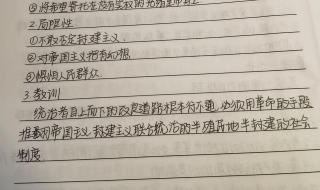 ③将希望寄托在没有实权的光绪皇帝上
2.局限性
①不敢否定封建主义.
②对帝国主义抱有幻想
③惧怕人民群众.
3.教训
统治者自上而下的改良道路根本行不通,必须用革命的手段
推翻帝国主义,封建主义联合统治的半殖民地半封建的社会
制度.